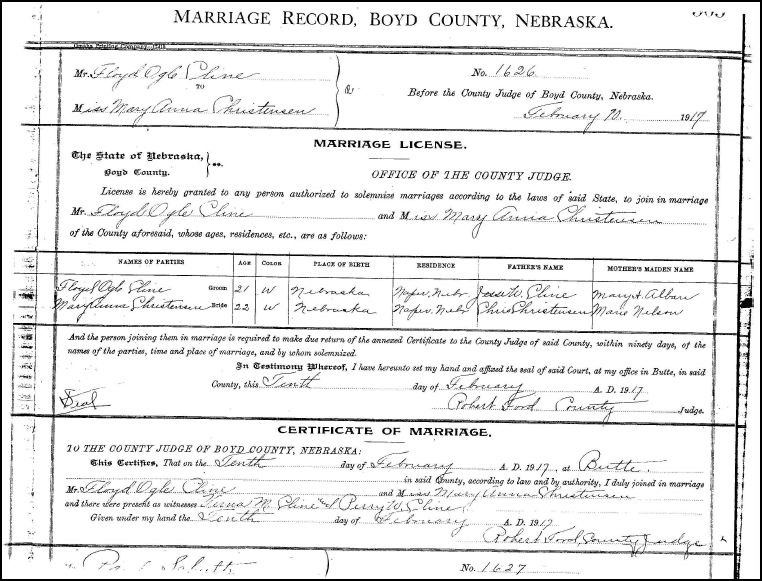 MARRIAGE RECORD, BOYD COUNTY, NEBRASKA.
Omaha Printing Company,
Mr. Floyd Ogle Cline
TO
Miss Mary Anna Christensen
No. 1626
Before the County Judge of Boyd County, Nebraska.
February 10. 1917
MARRIAGE LICENSE.
The State of Nebraska,
Boyd County. } ss.
OFFICE OF THE COUNTY JUDGE.
License is hereby granted to any person authorized to solemnize marriages according to the laws of said State, to join in marriage
Mr. Floyd Ogle Cline and Miss Mary Anna Christensen
of the County aforesaid, whose ages, residences, etc., are as follows:
NAMES OF PARTIES AGE COLOR PLACE OF BIRTH RESIDENCE FATHER'S NAME MOTHER'S MAIDEN NAME
Floyd Ogle Cline Groom 21 W Nebraska Naper, Nebr. W. Cline Mary A. Alban
Mary Anna Christensen Bride 22 W Nebraska Naper, Nebr Chris Christensen Marie Nelson
And the person joining them in marriage is required to make due return of the annexed Certificate to the County Judge of said County, within ninety days, of the
names of the parties, time and place of marriage, and by whom solemnized.
In Testimony Whereof, I have hereunto set my hand and affixed the seal of said Court, at my office in Butte, in said
County, this Tenth day of February A. D. 1917
Seal
Robert Ford County Judge.
CERTIFICATE OF MARRIAGE.
TO THE COUNTY JUDGE OF BOYD COUNTY, NEBRASKA:
This Certifies, That on the Tenth day of February A. D. 1917, at Butte.
in said County, according to law and by authority, I duly joined in marriage
Mr. Floyd Ogle Cline and Miss Mary Anna Christensen
and there were present as witnesses M. Cline and Perry W. Cline
Given under my hand the Tenth day of February A. D. 1917
Robert Ford, County Judge
No. 1627